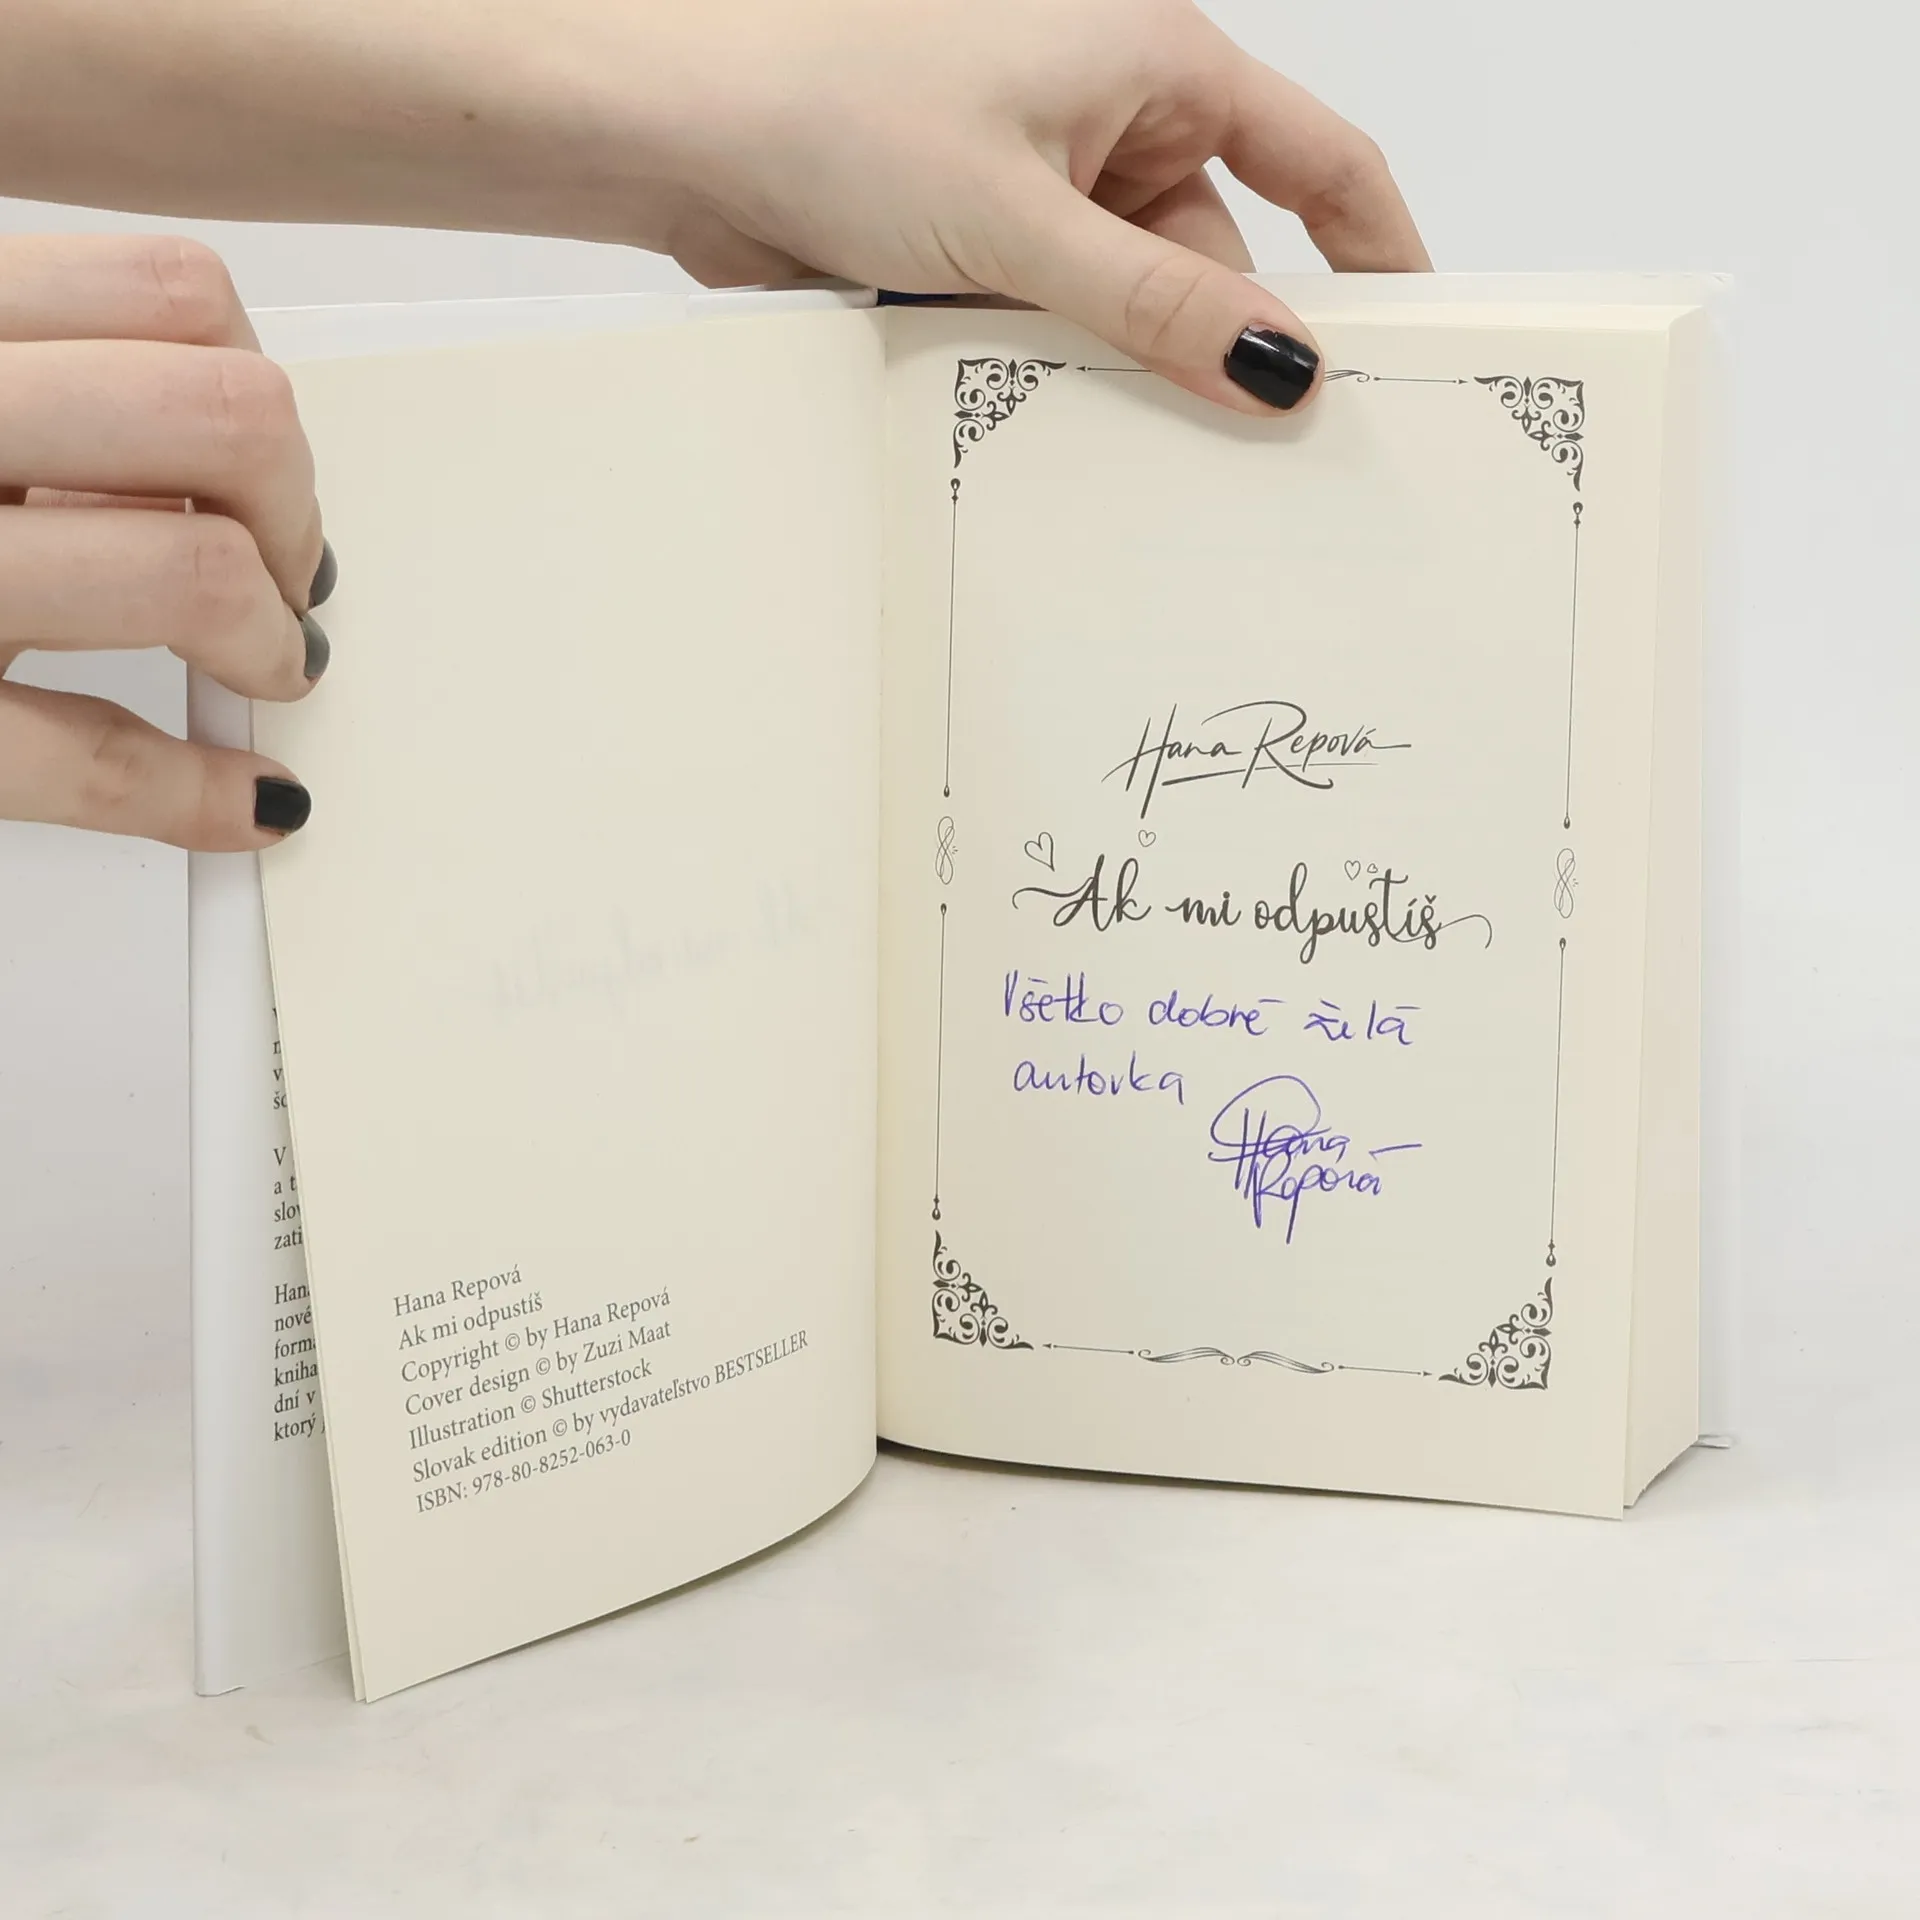 V
a t
slov
zati
Han
nové
forma
kniha
dní v
ktorý
Hana Repová
Ak mi odpustíš
Copyright © by Hana Repová
Cover design © by Zuzi Maat
Illustration © Shutterstock
Slovak edition © by vydavateľstvo BESTSELLER
ISBN: 978-80-8252-063-0
Hana Repová
Ak mi odpustíš
Všetko dobré želá
autorka
Hana
Repová